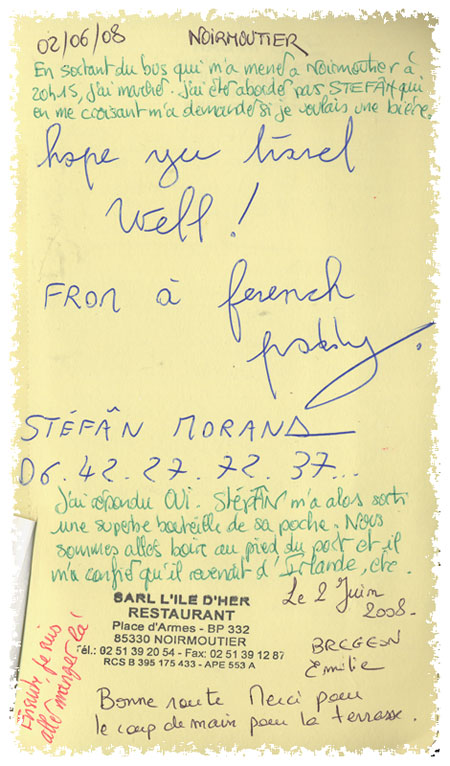 02/06/08 NOIRMOUTIER
En sortant du bus qui m'a mené à Noirmoutier à
20h15, j'ai marché. j'ai été abordé par STEFÂN qui
en me croisant m'a demandé si je voulais une bière.
hope you travel
Well!
FROM à french
STÉFÂN MORAND
06.42.27.72.37...
J'ai répondu OUI. STÉFÂN m'a alors sorti
une superbe bouteille de sa poche. Nous
sommes allés boire au pied du port et il
m'a confié qu'il revenait d'Irlande, etc.
SARL L'ILE D'HER
RESTAURANT
Place d'Armes - BP 332
85330 NOIRMOUTIER
Tél.: 02 51 39 20 54 - Fax: 02 51 39 12 87
RCS B 395 175 433 - APE 553 A
Le 2 Juin
2008.
Emilie
Ensuite je suis
allé manger là!
Bonne route Merci pour
le coup de main pour la terrasse.